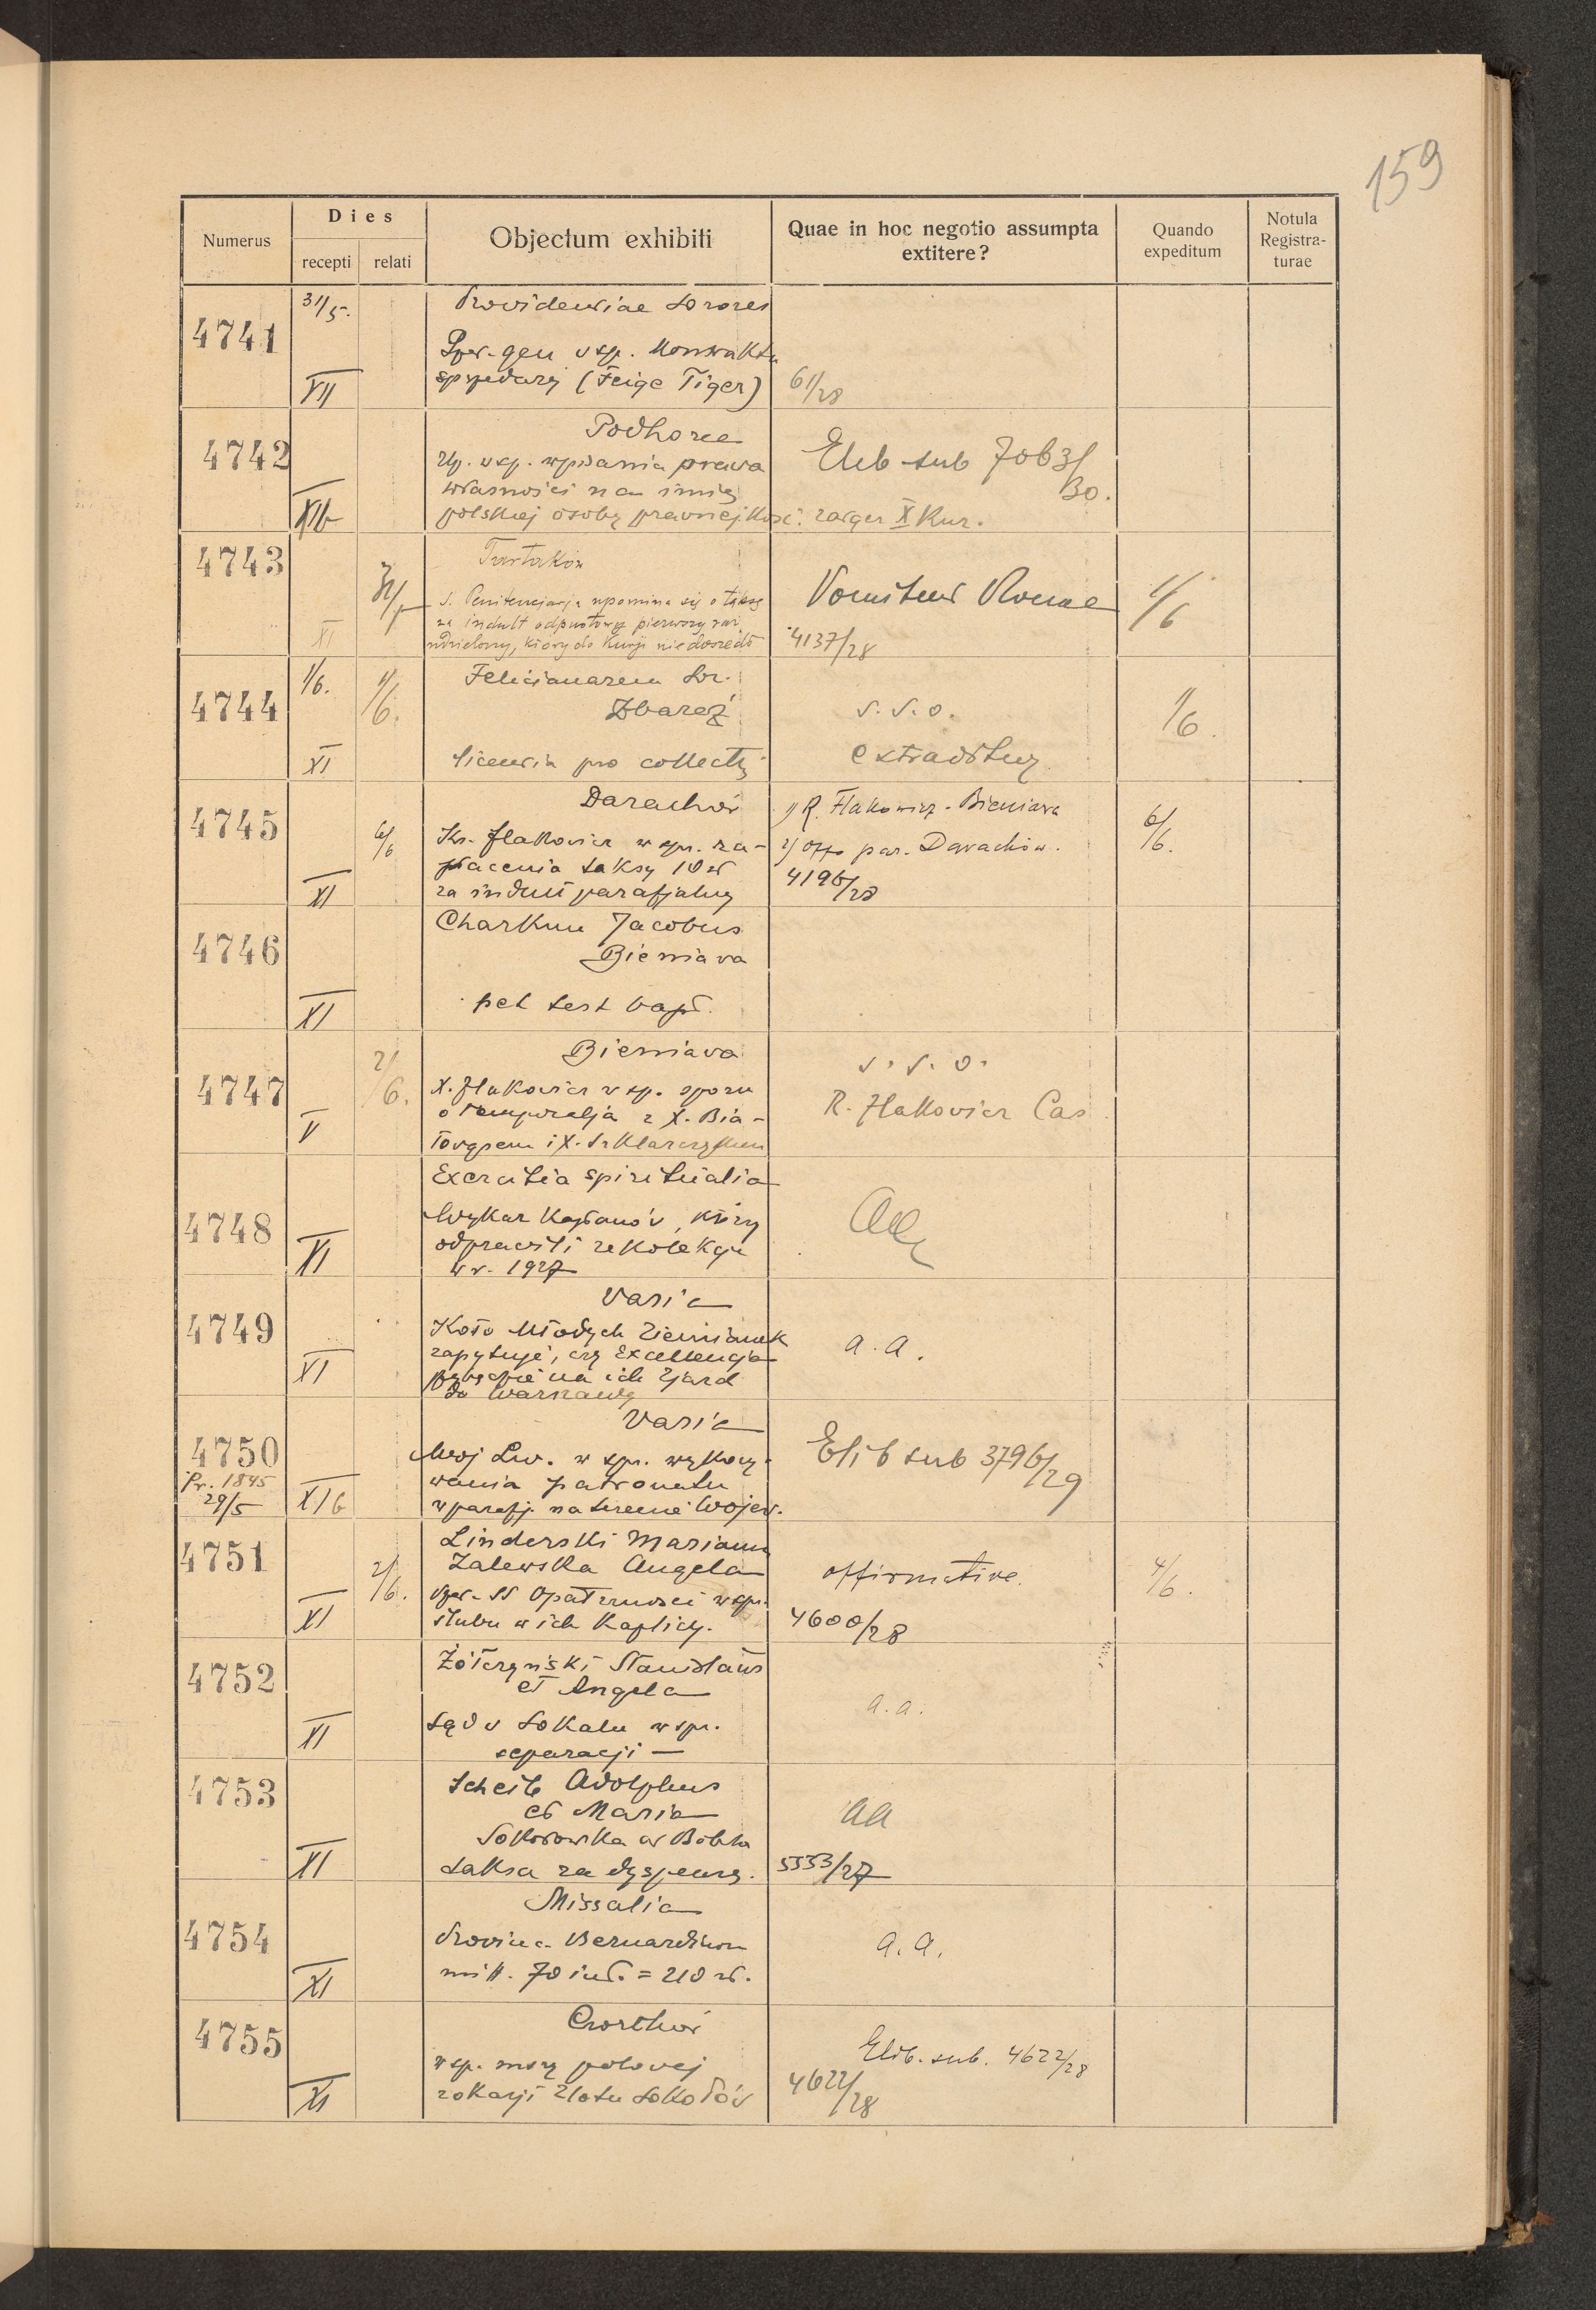 159
Numerus
Dies
recepti relati
Objectum exhibiti
Quae in hoc negotio assumpta
extitere?
Quando
expeditum
Notula
Registra-
turae
4741
31/5.
VII
Providentiae Sorores
spzedaży (Feige Tiger)
61/28
4742
XIb
Podhorce
wsp. wpisania prawa
własności na imię
polskiej osoby prawnej kość. zarqer X Kur.
Elib sub 7063/30.
4743
XI
31/5
Tartaków
S. Penitencjarja upomina się o taksę
za indult odpustowy pierwszy raz
udzielony, który do Kurji nie doszedł
Romae
4137/28
1/6
4744
1/6.
XI
1/6.
Felicianarum Sor.
Zbaraż
licencia pro collectą
s. s. o.
extraditur
1/6.
4745
XI
6/6
Darachów
Ks. Hakowicz w spr. za-
płacenia taksy 10 zł
za indult parafjalny
1) R. Hakowicz - Bieniawa
2) Offo par. Darachów.
4196/28
6/6.
4746
XI
Jacobus
Bieniawa
pet test bapt.
4747
V
2/6.
Bieniawa
X. Hakowicz w sp. sporu
o temporalja z X. Bia-
łowąsem i X. Szklarczykiem
s. s. o.
R. Hakowicz Cas
4748
XI
Exercitia spiritualia
Wykaz Kapłanów, którzy
odprawili rekolekcje
w r. 1927
aa
4749
XI
Varia
Koło Młodych Ziemianek
zapytuje, czy Excellencja
przybędzie na ich zjazd
do Warszawy
a. a.
4750
Pr. 1845
29/5
XIb
Varia
Woj Lw. w spr. wykony-
wania patronatu
w parafj. na terenie Wojew.
Elib sub 3796/29
4751
XI
2/6.
Linderski Marianus
Zalewska Angela
SS Opatrzności w spr.
ślubu w ich Kaplicy.
affirmative.
4600/28
4/6.
4752
XI
Żółczyński Stanislaus
et Angela
Sąd w Sokalu w spr.
separacji —
a. a.
4753
XI
Scheib Adolphus
et Maria
Sokołowska w Bóbrka
taksa za dyspensę.
aa
5353/27
4754
XI
Missalia
Provinc. Bernardinorum
mitt. 70 int. = 210 zł.
a. a.
4755
XI
Czortków
w sp. mszy polowej
z okazji Zlotu Sokołów
Elib. sub. 4622/28
4622/28